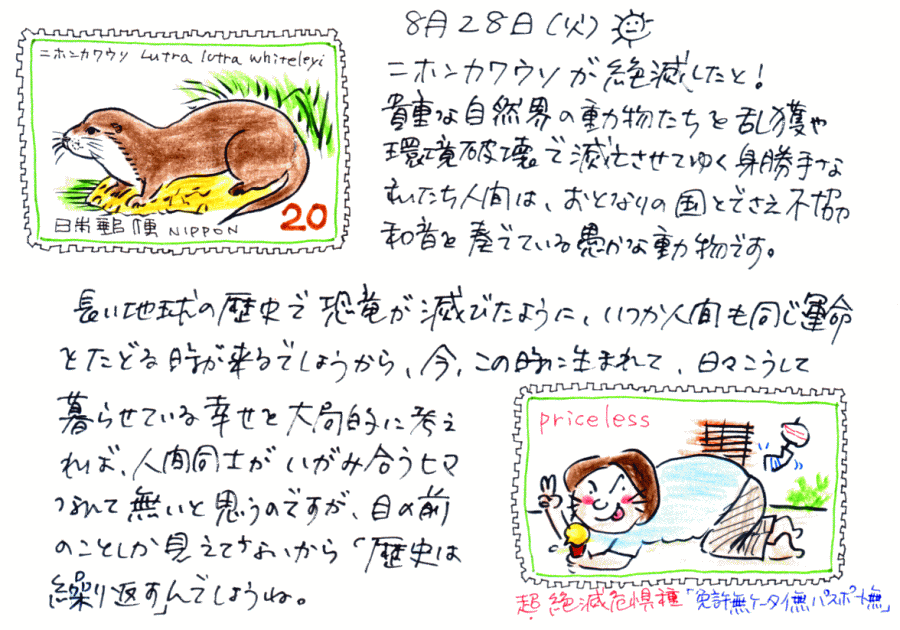 8月28日(火)
ニホンカワウソ Lutra lutra whiteleyi
20
日本郵便 NIPPON
ニホンカワウソが絶滅したと!
貴重な自然界の動物たちを乱獲や
環境破壊で滅亡させてゆく身勝手な
われたち人間は、おとなりの国とでさえ不協
和音を奏でている愚かな動物です。
長い地球の歴史で恐竜が滅びたように、いつか人間も同じ運命
をたどる時が来るでしょうから、今、この時に生まれて、日々こうして
暮らせている幸せを大局的に考え
れば、人間同士がいがみ合うヒマ
なんて無いと思うのですが、目の前
のことしか見えてないから「歴史は
繰り返す」んでしょうね。
priceless
超絶滅危惧種「免許無ケータイ無パスポート無」